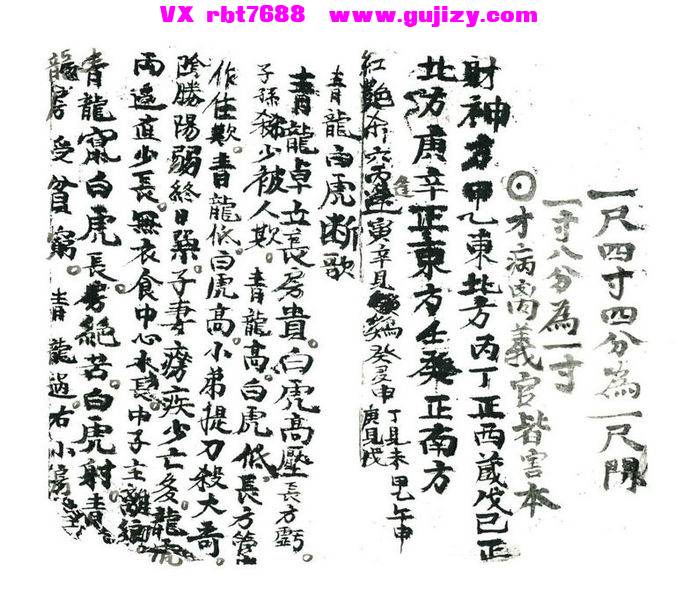 VX rbt7688 www.gujizy.com
一尺四寸四分為一尺門
一寸八分為一寸
⊙才病离義官皆害本
財神方甲乙東北方丙丁正西葴戊已正
北防庚辛正東方壬癸正南方
紅艷杀六丙逢寅辛見 癸 申丁見未甲乙午申庚見戌
青龍白虎断歌
青龍卓立長房貴白虎高壓長方虧
子孫殺少被人欺青龍高白虎低長方管
作住欺青龍低白虎高小弟提刀殺大哥
陰勝陽弱終日藥子妻癆疾少亡多龍虎
両邉直少長無衣食中心水長中子主離
青龍窜白虎長房絕苦白虎射青
龍房受貧窮青龍過右小房